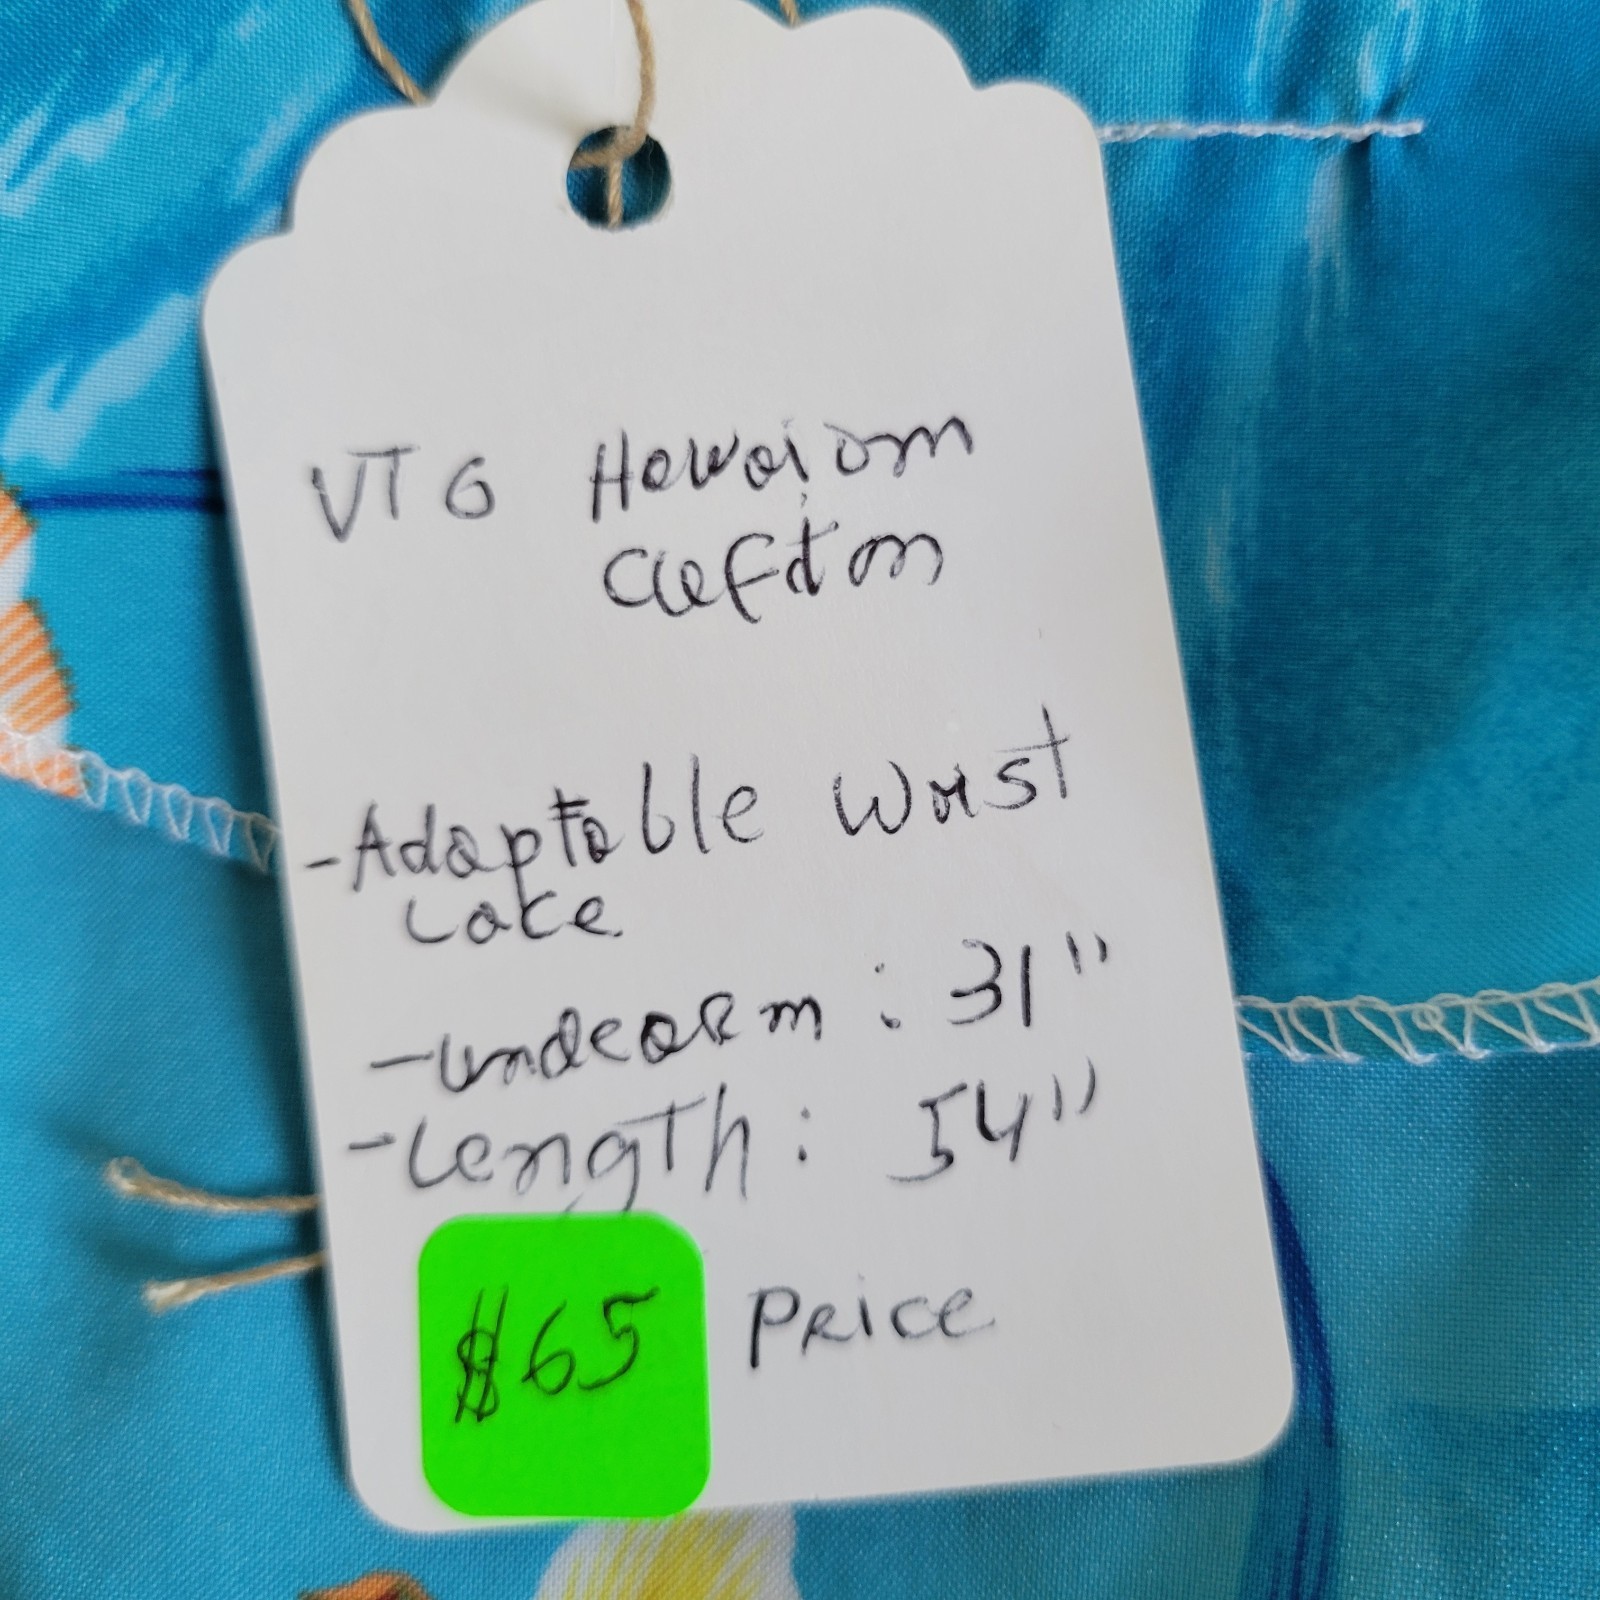 VTG Hawaiian
Caftan
- Adaptable Waist
Lace
- Underarm : 31"
- Length : 54"
$65 Price